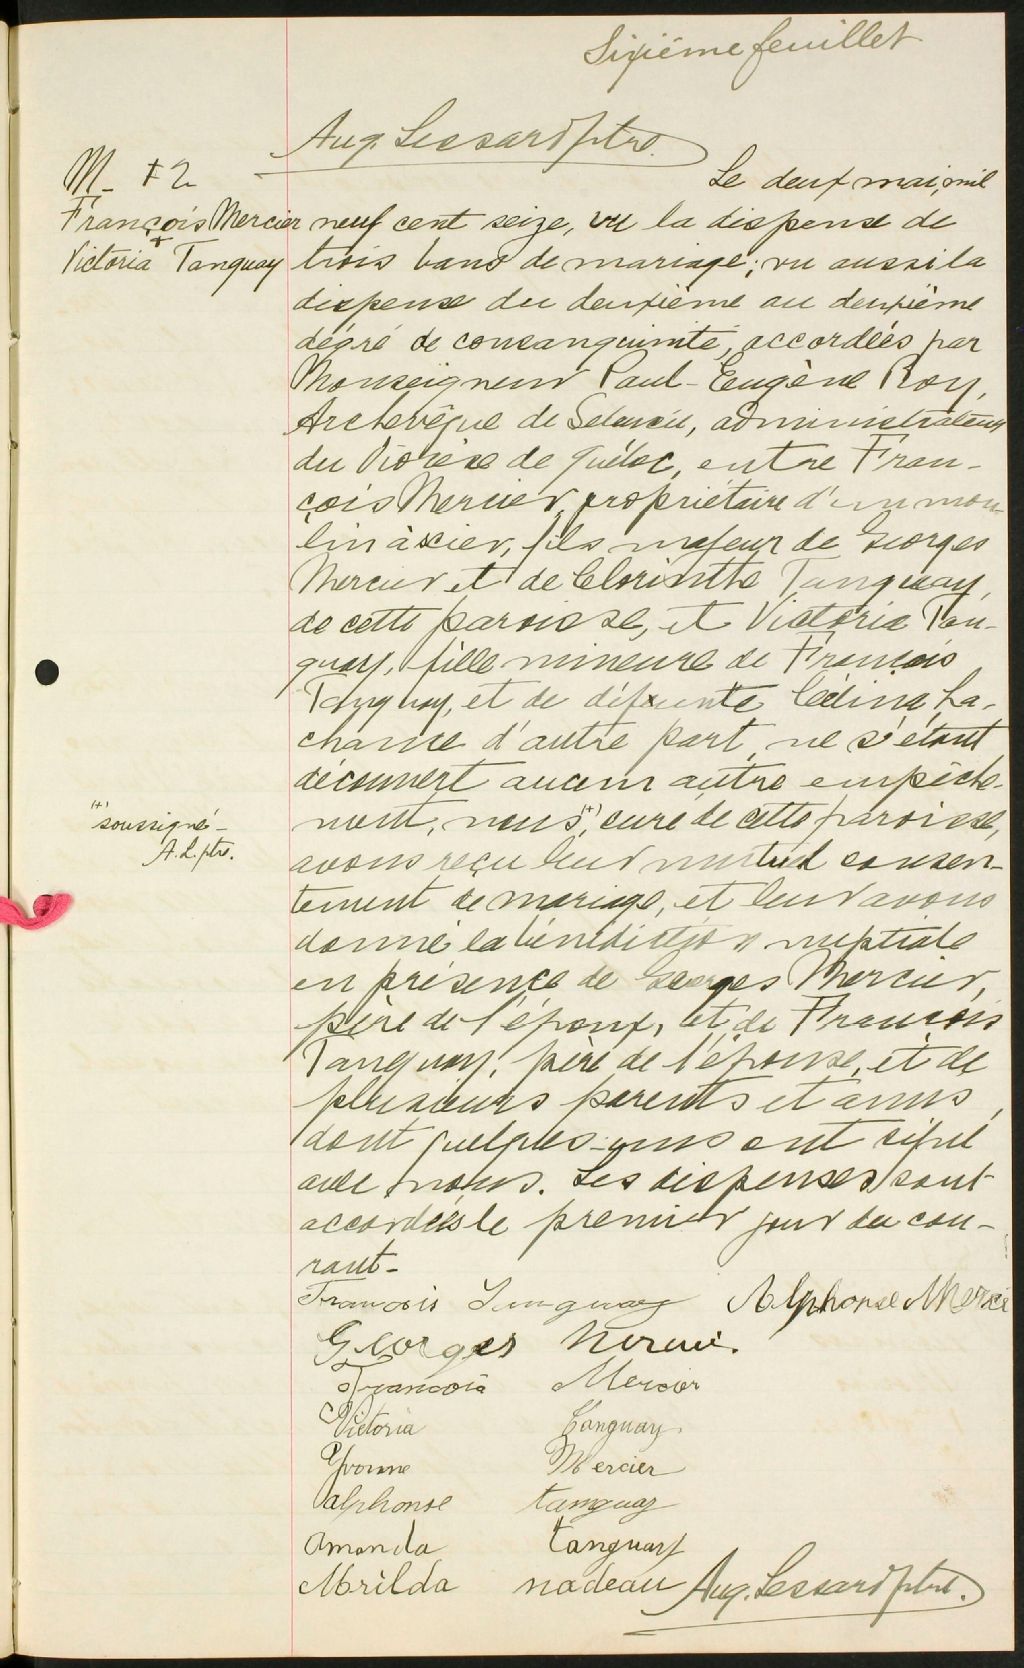 Sixième feuillet
Aug. Lessard ptre.
M- +2
François Mercier
+
Victoria Tanguay
Le deux mai, mil
neuf cent seize, vu la dispense de
trois bans de mariage; vu aussi la
dispense du deuxième au deuxième
dégré de consanguinité, accordées par
Monseigneur Paul-Eugène Roy,
Archevêque de Séleucie, administrateur
du Diocèse de Québec, entre Fran-
çois Mercier, propriétaire d'un mou-
lin à scier, fils majeur de Georges
Mercier et de Clorinthe Tanguay,
de cette paroisse, et Victoria Tan-
guay, fille mineure de François
Tanguay, et de défunte Cédina La-
chance d'autre part, ne s'étant
découvert aucun autre empêche-
ment, nous (+), curé de cette paroisse,
(+) soussigné-
A. L. ptre.
avons reçu leur mutuel consen-
tement de mariage, et leur avons
donné la bénédiction nuptiale
en présence de Georges Mercier,
père de l'époux, et de François
Tanguay, père de l'épouse, et de
plusieurs parents et amis,
dont quelques-uns ont signé
avec nous. Les dispenses sont
accordées le premier jour du cou-
rant-
François Tanguay Alphonse Mercie
Georges Mercier.
François Mercier
Victoria Tanguay.
Yvonne Mercier
alphonse tanguay
Amanda tanguay
Mrilda nadeau Aug. Lessard ptre.